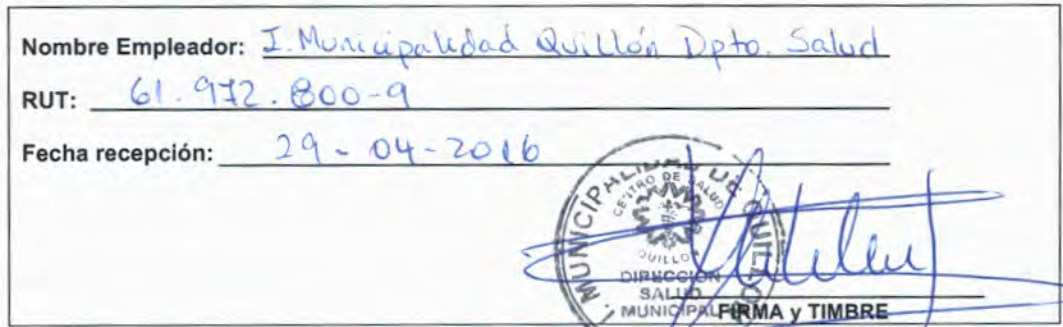 Nombre Empleador: I. Municipalidad Quillón Dpto. Salud
RUT: 61.972.800-9
Fecha recepción: 29-04-2016
I. MUNICIPALIDAD DE QUILLON
CENTRO DE SALUD
QUILLON
DIRECCION
SALUD
MUNICIPAL
FIRMA y TIMBRE